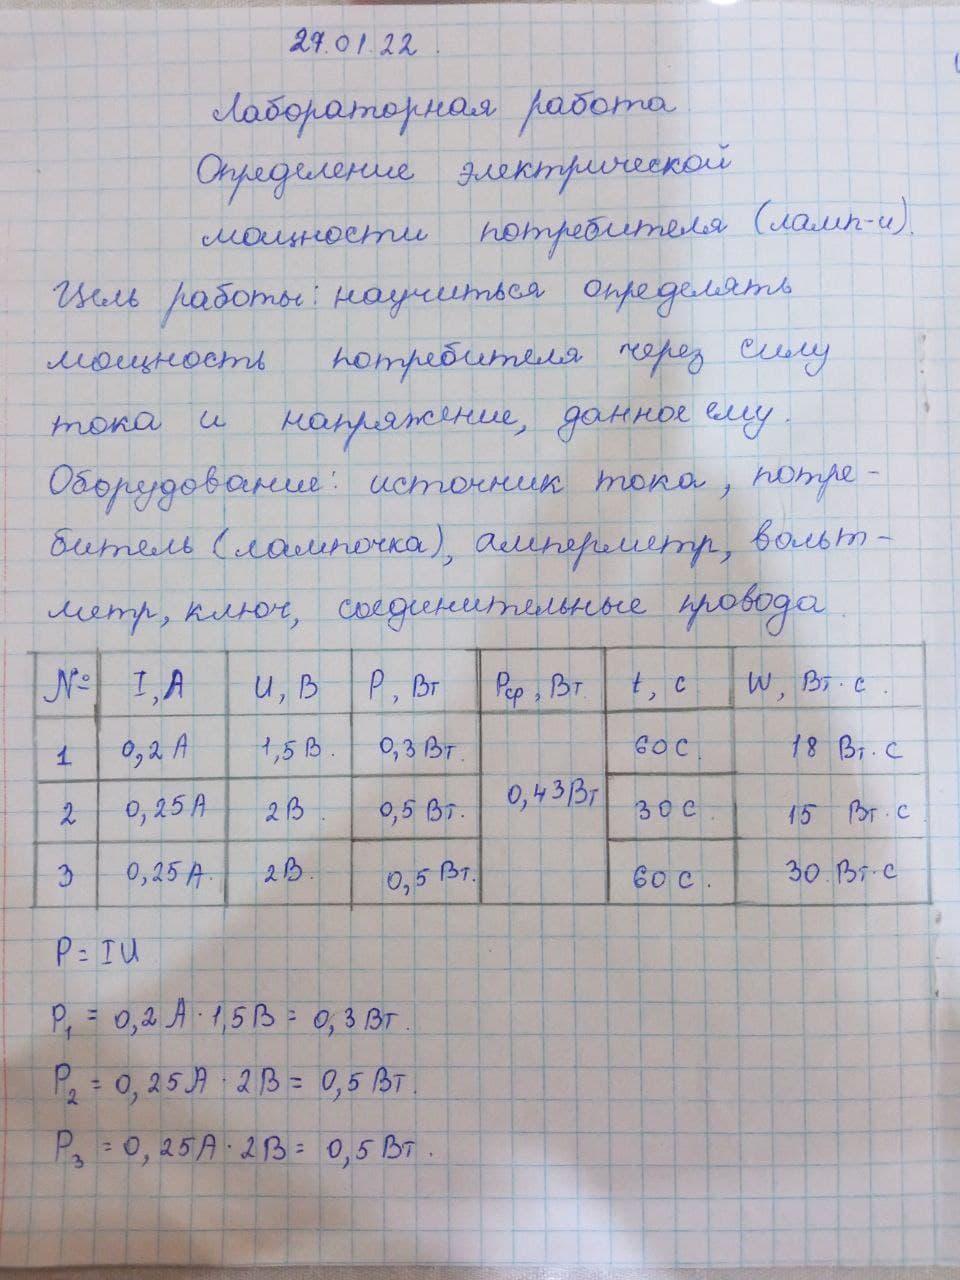 27.01.22.
Лабораторная работа
Определение электрической
мощности потребителя (ламп-и).
Цель работы: научиться определять
мощность потребителя через силу
тока и напряжение, данное ему.
Оборудование: источник тока, потре-
битель (лампочка), амперметр, вольт-
метр, ключ, соединительные провода
№ I, A U, В P, Вт Pср, Вт. t, с W, Вт·с.
1 0,2 А 1,5 В. 0,3 Вт. 60 с. 18 Вт·с
0,43 Вт
2 0,25 А 2 В. 0,5 Вт. 30 с. 15 Вт·с
3 0,25 А. 2 В. 0,5 Вт. 60 с. 30. Вт·с
P = IU
P₁ = 0,2 А · 1,5 В = 0,3 Вт.
P₂ = 0,25 А · 2 В = 0,5 Вт.
P₃ = 0,25 А · 2 В = 0,5 Вт.